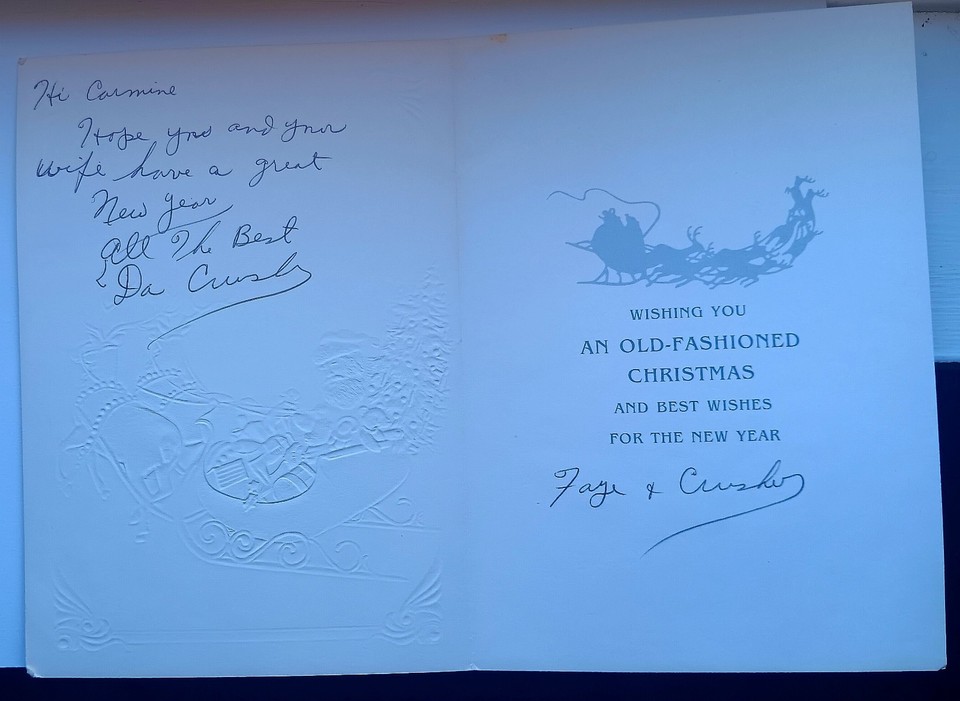 Hi Carmine
Hope you and your
wife have a great
New Year
All The Best
Da Crusher
WISHING YOU
AN OLD-FASHIONED
CHRISTMAS
AND BEST WISHES
FOR THE NEW YEAR
Faye & Crusher